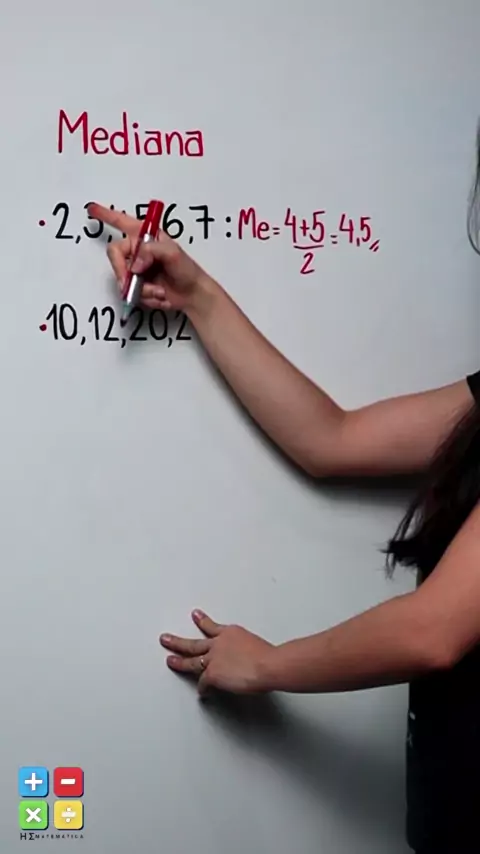 Mediana
• 2,3, 5 6,7 : Me = 4+5/2 = 4,5
• 10,12,20,2
+ -
× ÷
HΣMATEMÁTICA